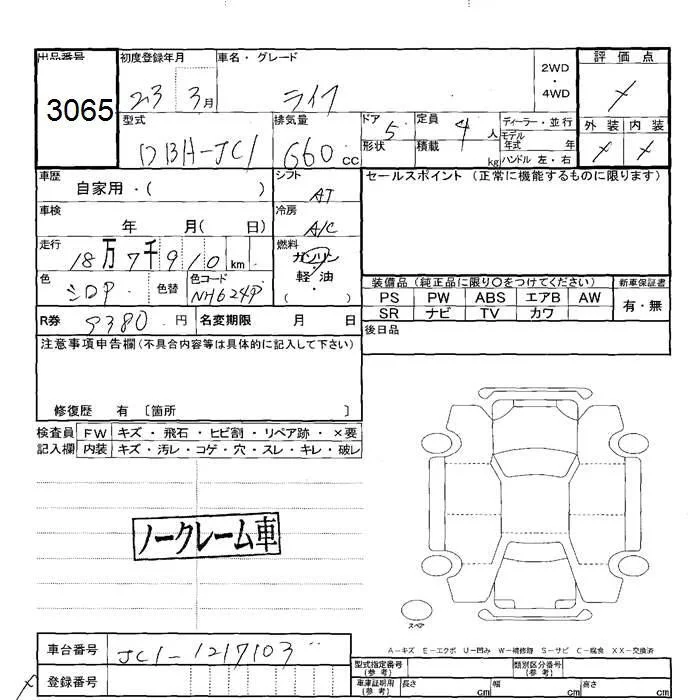 出品番号 初度登録年月 車名・グレード 2WD・4WD 評価点
3065 23 3月 ライフ
型式 排気量 ドア 5 定員 4人 ディーラー・並行 外装 内装
DBA-JC1 660 cc 形状 積載 kg モデル年式 年 ハンドル 左・右
車歴 自家用・( ) シフト AT セールスポイント (正常に機能するものに限ります)
車検 年 月( 日) 冷房 A/C
走行 18万7千910km 燃料 ガソリン・軽油 ( )
色 シロP 色替 色コード NH624P 装備品 (純正品に限り○をつけてください) 新車保証書
PS PW ABS エアB AW 有・無
SR ナビ TV カワ
R券 9380 円 名変期限 月 日 後日品
注意事項申告欄 (不具合内容等は具体的に記入して下さい)
修復歴 有 〔箇所 〕
検査員 FW キズ・飛石・ヒビ割・リペア跡・×要
記入欄 内装 キズ・汚レ・コゲ・穴・スレ・キレ・破レ
ノークレーム車
スペア
A-キズ E-エクボ U-凹み W-補修跡 S-サビ C-腐食 XX-交換済
車台番号 JC1-1217103
型式指定番号 (参考) 類別区分番号 (参考)
登録番号 車庫証明用 (参考) 長さ cm 幅 cm 高さ cm